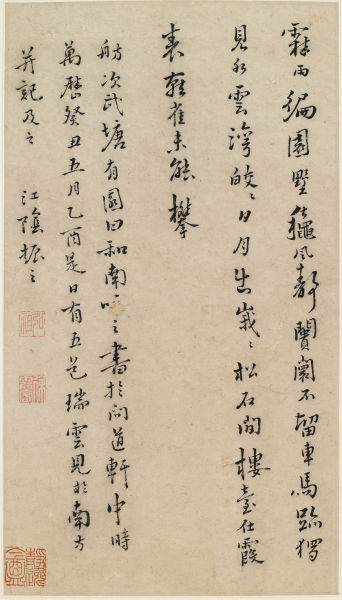 霖雨編園墅穐風靜闠闤不留車馬跡猶
見水雲灣皎〻日月出峩〻松石間樓臺仕霞
表猿雀未能攀
舫次武塘有園曰和南咏之書於問道軒中時
萬曆癸丑五月乙酉是日有五色瑞雲見於南方
并記及之 江陰振之